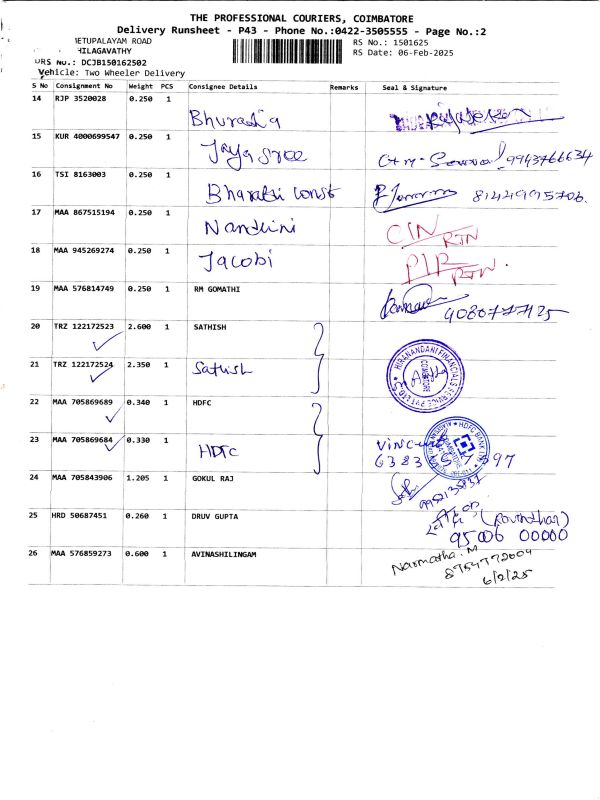 THE PROFESSIONAL COURIERS, COIMBATORE
Delivery Runsheet - P43 - Phone No.:0422-3505555 - Page No.:2
METUPALAYAM ROAD RS No.: 1501625
HILAGAVATHY RS Date: 06-Feb-2025
DRS No.: DCJB150162502
Vehicle: Two Wheeler Delivery
S No Consignment No Weight PCS Consignee Details Remarks Seal & Signature
14 RJP 3520028 0.250 1
15 KUR 4000699547 0.250 1 Jaya sree 9943766634
16 TSI 8163003 0.250 1 Bharathi const 8144995706
17 MAA 867515194 0.250 1 Nandhini CIN RTN
18 MAA 945269274 0.250 1 Jacobi RTN
19 MAA 576814749 0.250 1 RM GOMATHI 9080777125
20 TRZ 122172523 2.600 1 SATHISH
21 TRZ 122172524 2.350 1 Sathish HIRANANDANI FINANCIAL SERVICES PVT LTD COIMBATORE
22 MAA 705869689 0.340 1 HDFC
23 MAA 705869684 0.330 1 HDFC HDFC BANK
24 MAA 705843906 1.205 1 GOKUL RAJ
25 HRD 50687451 0.260 1 DRUV GUPTA 95006 00000
26 MAA 576859273 0.600 1 AVINASHILINGAM Narmatha. M
6/2/25